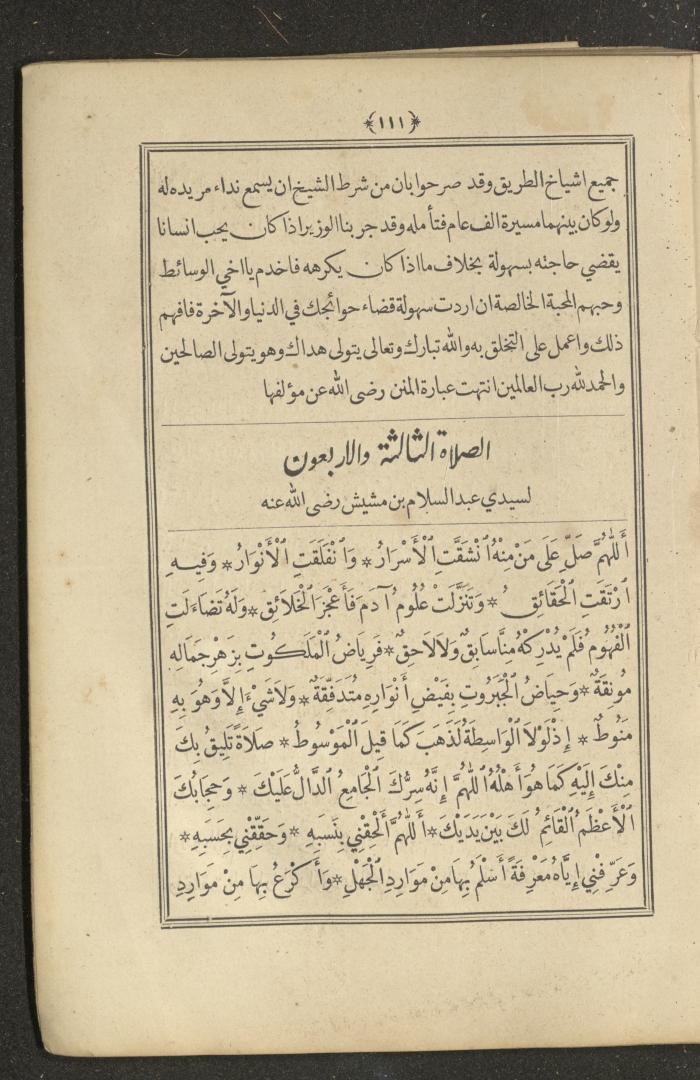 ﴿١١١﴾
جميع اشياخ الطريق وقد صرحوا بان من شرط الشيخ ان يسمع نداء مريده له
ولو كان بينهما مسيرة الف عام فتأمله وقد جربنا الوزير اذا كان يحب انسانا
يقضي حاجته بسهولة بخلاف ما اذا كان يكرهه فاخدم يا اخي الوسائط
وحبهم المحبة الخالصة ان اردت سهولة قضاء حوائجك في الدنيا والآخرة فافهم
ذلك واعمل على التخلق به والله تبارك وتعالى يتولى هداك وهو يتولى الصالحين
والحمد لله رب العالمين انتهت عبارة المنن رضى الله عن مؤلفها
الصلاة الثالثة والاربعون
لسيدي عبد السلام بن مشيش رضى الله عنه
أَللّٰهُمَّ صَلِّ عَلَى مَنْ مِنْهُ ٱنْشَقَّتِ ٱلْأَسْرَارُ * وَٱنْفَلَقَتِ ٱلْأَنْوَارُ * وَفِيهِ
ٱرْتَقَتِ ٱلْحَقَائِقُ * وَتَنَزَّلَتْ عُلُومُ آدَمَ فَأَعْجَزَ ٱلْخَلَائِقَ * وَلَهُ تَضَاءَلَتِ
ٱلْفُهُومُ فَلَمْ يُدْرِكْهُ مِنَّا سَابِقٌ وَلَا لَاحِقٌ * فَرِيَاضُ ٱلْمَلَكُوتِ بِزَهْرِ جَمَالِهِ
مُونِقَةٌ * وَحِيَاضُ ٱلْجَبَرُوتِ بِفَيْضِ أَنْوَارِهِ مُتَدَفِّقَةٌ * وَلَا شَيْءَ إِلَّا وَهُوَ بِهِ
مَنُوطٌ * إِذْ لَوْلَا ٱلْوَاسِطَةُ لَذَهَبَ كَمَا قِيلَ ٱلْمَوْسُوطُ * صَلَاةً تَلِيقُ بِكَ
مِنْكَ إِلَيْهِ كَمَا هُوَ أَهْلُهُ ٱللّٰهُمَّ إِنَّهُ سِرُّكَ ٱلْجَامِعُ ٱلدَّالُّ عَلَيْكَ * وَحِجَابُكَ
ٱلْأَعْظَمُ ٱلْقَائِمُ لَكَ بَيْنَ يَدَيْكَ * أَللّٰهُمَّ أَلْحِقْنِي بِنَسَبِهِ * وَحَقِّقْنِي بِحَسَبِهِ *
وَعَرِّفْنِي إِيَّاهُ مَعْرِفَةً أَسْلَمُ بِهَا مِنْ مَوَارِدِ ٱلْجَهْلِ * وَأَكْرَعُ بِهَا مِنْ مَوَارِدِ